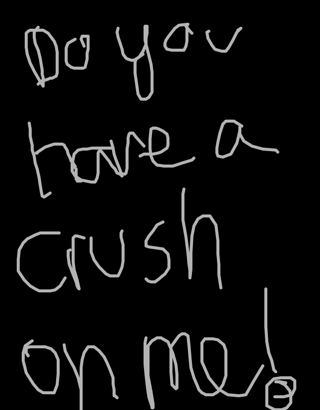 Do you
have a
crush
on me!